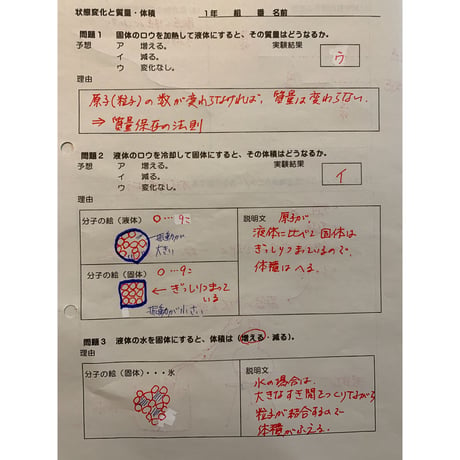 状態変化と質量・体積 1年 組 番 名前
問題1 固体のロウを加熱して液体にすると、その質量はどうなるか。
予想 ア 増える。 実験結果
イ 減る。 ウ
ウ 変化なし。
理由
原子(粒子)の数が変わらなければ、質量は変わらない.
⇒ 質量保存の法則
問題2 液体のロウを冷却して固体にすると、その体積はどうなるか。
予想 ア 増える。 実験結果
イ 減る。 イ
ウ 変化なし。
理由
分子の絵(液体) ○…9こ
振動が
大きい
分子の絵(固体) ○…9こ
← ぎっしりつまって
いる
振動が小さい
説明文 原子が、
液体に比べて固体は
ぎっしりつまっているので、
体積はへる。
問題3 液体の水を固体にすると、体積は(増える・減る)。
理由
分子の絵(固体)・・・氷
説明文
水の場合は、
大きなすき間をつくりながら
粒子が結合するので
体積がふえる.